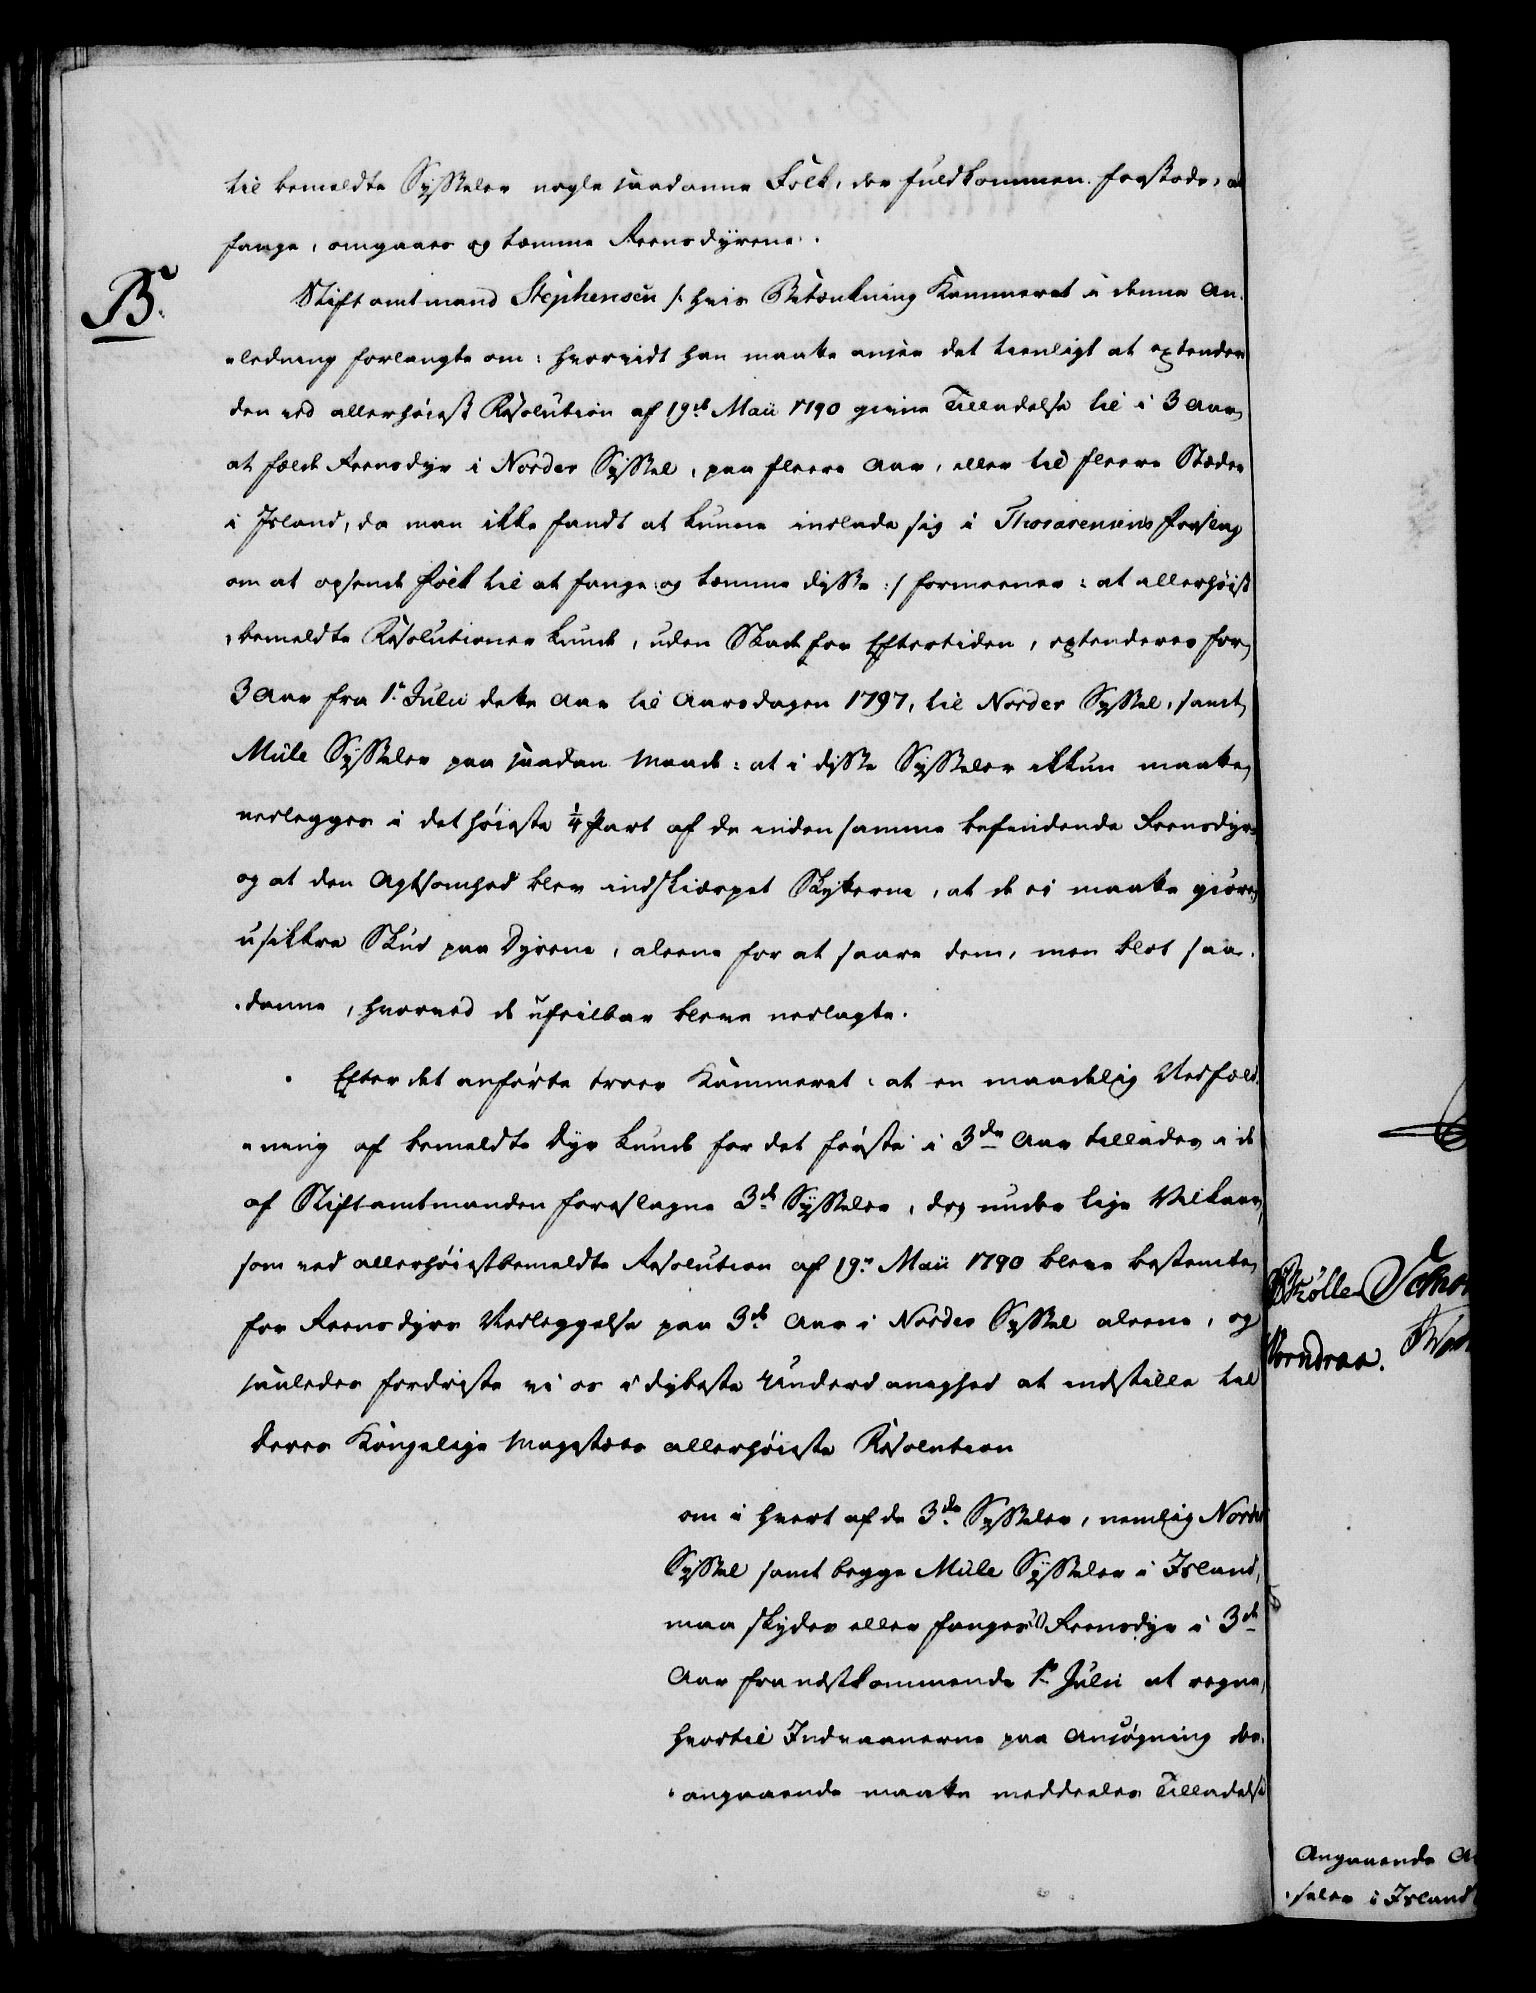 til bemeldte Sysseler nogle saadanne Folk, der fuldkommen forstode, at
fange, omgaaes og tæmme Reensdyrene.
B.
Stiftamtmand Stephensen /: hvis Betænkning Kammeret i denne An-
-ledning forlangte om: hvorvidt han maatte ansee det tienligt at extendere
den ved allerhøieste Resolution af 19de Maii 1790 givne Tilladelse til i 3 Aar
at fælde Reensdyr i Norder Syssel, paa fleere Aar, eller til fleere Stæder
i Island, da man ikke fandt at kunne indlade sig i Thorarensens Forslag
om at opsende Folk til at fange og tæmme disse :/ formeener: at allerhøist-
-bemeldte Resolutioner kunde, uden Skade for Eftertiden, extenderes for
3 Aar fra 1te Julii dette Aar til Aarsdagen 1797, til Norder Syssel, samt
Mule Sysseler paa saadan Maade: at i disse Sysseler ikkun maatte
nedlegges i det høieste 1/4 Part af de inden samme befindende Reensdyr
og at den Agtsomhed blev indskiærpet Skytterne, at de ei maatte giøre
usikkre Skud paa Dyrene, aleene for at saare dem, men blot saa-
-danne, hvorved de ufeilbar bleve nedlagte.
Efter det anførte troer Kammeret: at en maadelig Nedfæld-
-ning af bemeldte Dyr kunde for det første i 3de Aar tillades i de
af Stiftamtmanden foreslagne 3de Sysseler, dog under lige Vilkaar,
som ved allerhøistbemeldte Resolution af 19de Maii 1790 bleve bestemte
for Reensdyrs Nedleggelse paa 3de Aar i Norder Syssel aleene, og
saaledes fordriste vi os i dybeste Underdanighed at indstille til
Deres Kongelige Majestæts allerhøieste Resolution
om i hvert af de 3de Sysseler, nemlig Norder
Syssel samt begge Mule Sysseler i Island,
maa skydes eller fanges Reensdyr i 3de
Aar fra nestkommende 1te Julii at regne,
hvortil Indvaanerne paa Ansøgning der-
-angaaende maatte meddeeles Tilladelse
Angaaende
-seler i Island